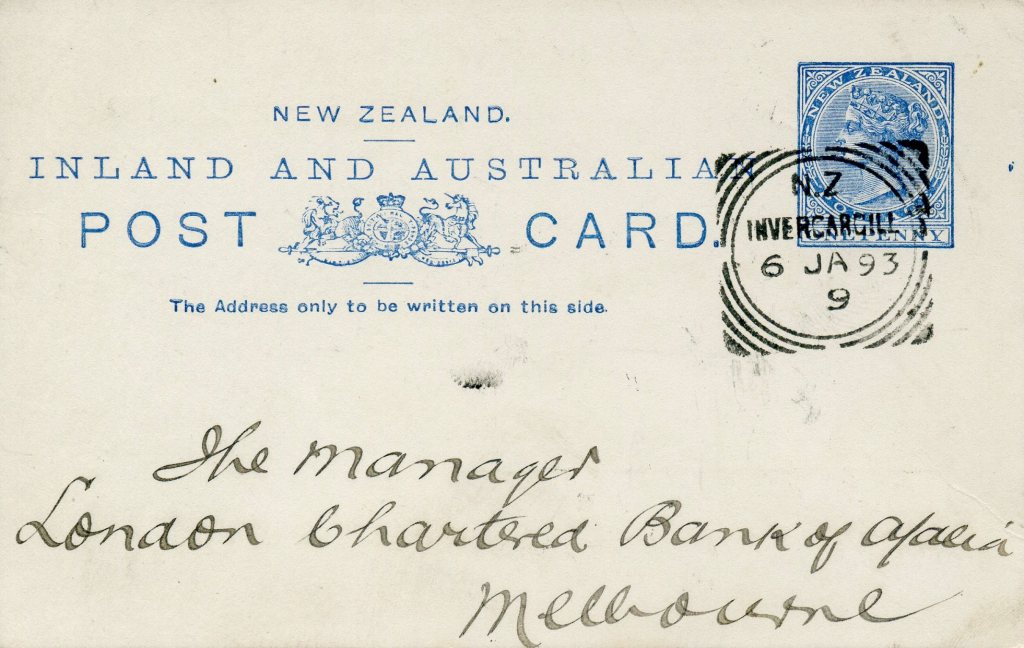 NEW ZEALAND.
INLAND AND AUSTRALIAN
POST CARD.
The Address only to be written on this side.
NEW ZEALAND
ONE PENNY
N.Z
INVERCARGILL
6 JA 93
9
The Manager
London Chartered Bank of
Melbourne